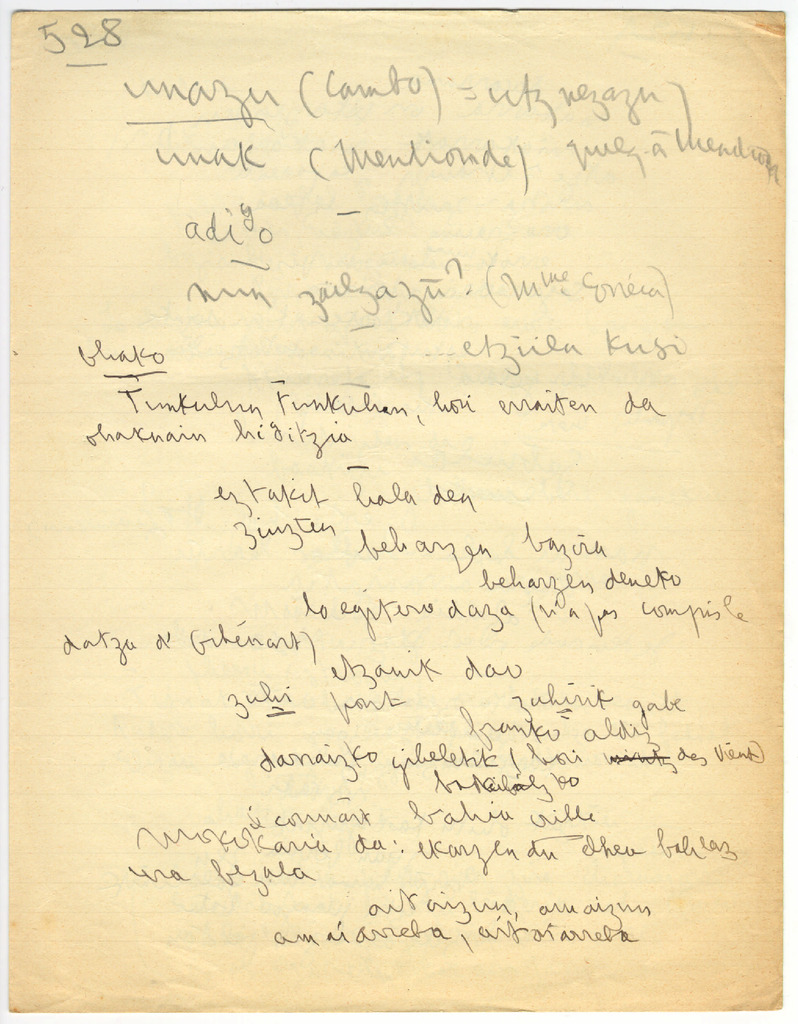 528
unazu (Cambo) = utz nezazu)
unak (Mendionde)
adigo
nun zailzazu? (Mme Corréca)
etziila kusi
ohako
Tunkulun Tunkulun, hori erraiten da
ohakuain higitzia
eztakit hola den
ziuzten
beharzen bazira
beharzen deneko
lo egitero daza (n'a pas compris le
datza d'Oihénart)
etzanik dao
zuhi pont zuhirik gabe
franko aldiz
darraizko gibeletik (hori des vient)
connaît bahia
da: ekarzen du
ura bezala
aitaizun, amaizun
amaiarreba, aitaiarreba